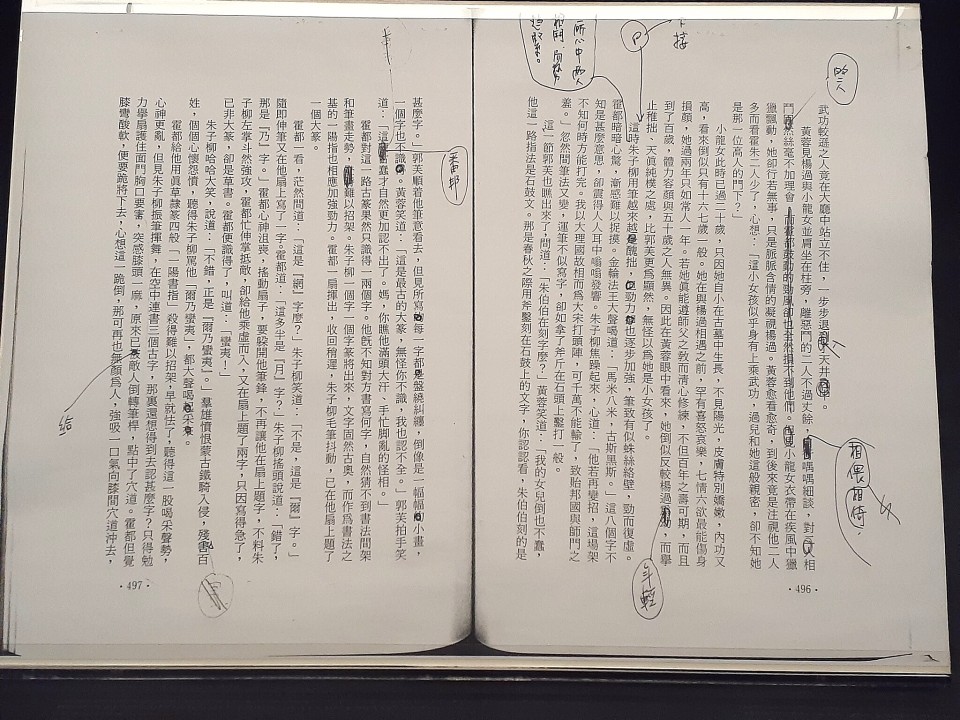 武功較遜之人竟在大廳中站立不住，一步步退到了天井中。
黃蓉見楊過與小龍女並肩坐在柱旁，離惡鬥的二人不過丈餘，喁喁細談，對
獵飄動，她卻行若無事，只是脈脈含情的凝視楊過。黃蓉愈看愈奇，到後來竟是注視他二人
多而看霍朱二人少了，心想：「這小女孩似乎身有上乘武功，過兒和她這般親密，卻不知她
是那一位高人的門下？」
小龍女此時已過二十歲，只因她自小在古墓中生長，不見陽光，皮膚特別嬌嫩，內功又
高，看來倒似只有十六七歲一般。她在與楊過相遇之前，罕有喜怒哀樂，七情六欲最能傷身
損顏，她過兩年只如常人一年。若她真能遵師父之教而清心修練，不但百年之壽可期，而且
到了百歲，體力容顏與五十歲之人無異。因此在黃蓉眼中看來，她倒似反較楊過，而舉
止稚拙、天真純樸之處，比郭芙更為顯然，無怪以為她是小女孩了。
這時朱子柳用筆越來越醜拙，勁力也逐步加強，筆致有似蛛絲絡壁，勁而復虛。
霍都暗暗心驚，漸感難以捉摸。金輪法王大聲喝道：「馬米八米，古斯黑斯。」這八個字不
知是甚麼意思，卻震得人人耳中嗡嗡發響。朱子柳焦躁起來，心道：「他若再變招，這場架
不知何時方能打完。我以大理國故相而為大宋打頭陣，可千萬不能輸了，致貽邦國與師門之
羞。」忽然間筆法又變，運筆不似寫字，卻如拿了斧斤在石頭上鑿打一般。
這一節郭芙也瞧出來了，問道：「朱伯伯在刻字麼？」黃蓉笑道：「我的女兒倒也不蠢，
他這一路指法是石鼓文。那是春秋之際用斧鑿刻在石鼓上的文字，你認認看，朱伯伯刻的是
相偎相倚，
年輕
下接
・496・
甚麼字。」郭芙順着他筆意看去，但見所寫每一字都盤繞糾纏，倒像是一幅幅小畫，
一個字也不識。黃蓉笑道：「這是最古的大篆，無怪你不識，我也認不全。」郭芙拍手笑
道：「這蠢才自然更加認不出了。媽，你瞧他滿頭大汗、手忙腳亂的怪相。」
霍都對這一路古篆果然只識得一兩個字。他旣不知對方書寫何字，自然猜不到書法間架
和筆畫走勢，難以招架。朱子柳一個字一個字篆將出來，文字固然古奧，而作為書法之
基的一陽指也相應加強勁力。霍都一扇揮出，收回稍遲，朱子柳毛筆抖動，已在他扇上題了
一個大篆。
霍都一看，茫然問道：「這是『網』字麼？」朱子柳笑道：「不是，這是『爾』字。」
隨卽伸筆又在他扇上寫了一字。霍都道：「這多半是『月』字？」朱子柳搖頭說道：「錯了，
那是『乃』字。」霍都心神沮喪，搖動扇子，要躲開他筆鋒，不再讓他在扇上題字，不料朱
子柳左掌斗然強攻，霍都忙伸掌抵敵，卻給他乘虛而入，又在扇上題了兩字，只因寫得急了，
已非大篆，卻是草書。霍都便識得了，叫道：「蠻夷！」
朱子柳哈哈大笑，說道：「不錯，正是『爾乃蠻夷』。」羣雄憤恨蒙古鐵騎入侵，殘害百
姓，個個心懷怨憤，聽得朱子柳罵他「爾乃蠻夷」，都大聲喝采。
霍都給他用真草隸篆四般「一陽書指」殺得難以招架，早就怯了，聽得這一股喝采聲勢，
心神更亂，但見朱子柳振筆揮舞，在空中連書三個古字，那裏還想得到去認甚麼字？只得勉
力舉扇護住面門胸口要害，突感膝頭一麻，原來已敵人倒轉筆桿，點中了穴道。霍都但覺
膝彎酸軟，便要跪將下去，心想這一跪倒，那可再也無顏爲人，強吸一口氣向膝間穴道沖去，
番邦
給
・497・